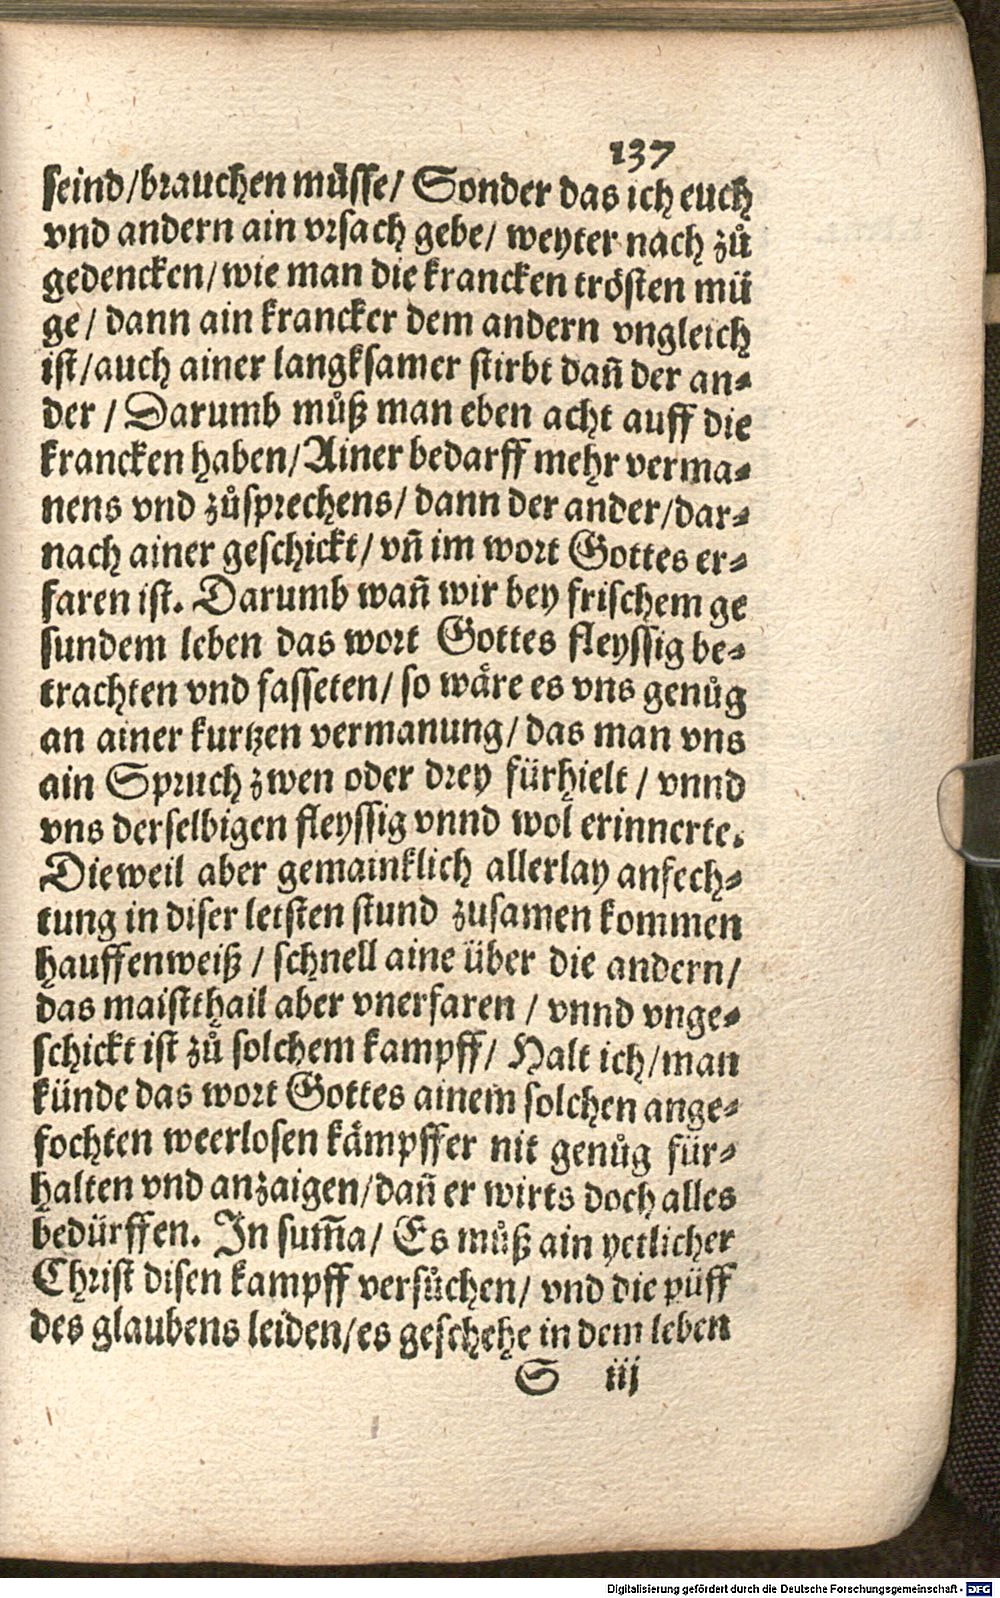 137
seind/brauchen müsse/ Sonder das ich euch
vnd andern ain vrsach gebe/ weyter nach zů
gedencken/wie man die krancken trösten mü
ge/ dann ain krancker dem andern vngleich
ist/auch ainer langksamer stirbt dañ der an-
der / Darumb můß man eben acht auff die
krancken haben/Ainer bedarff mehr verma-
nens vnd zůsprechens/ dann der ander/dar-
nach ainer geschickt/ vñ im wort Gottes er-
faren ist. Darumb wañ wir bey frischem ge
sundem leben das wort Gottes fleyssig be-
trachten vnd fasseten/ so wäre es vns genůg
an ainer kurtzen vermanung/ das man vns
ain Spruch zwen oder drey fürhielt / vnnd
vns derselbigen fleyssig vnnd wol erinnerte.
Dieweil aber gemainklich allerlay anfech-
tung in diser letsten stund zusamen kommen
hauffenweiß / schnell aine über die andern/
das maistthail aber vnerfaren / vnnd vnge-
schickt ist zů solchem kampff/ Halt ich/man
künde das wort Gottes ainem solchen ange-
fochten weerlosen kämpffer nit genůg für-
halten vnd anzaigen/dañ er wirts doch alles
bedürffen. In sum̃a/ Es můß ain yetlicher
Christ disen kampff versůchen/ vnd die püff
des glaubens leiden/es geschehe in dem leben
S iij
Digitalisierung gefördert durch die Deutsche Forschungsgemeinschaft - DFG